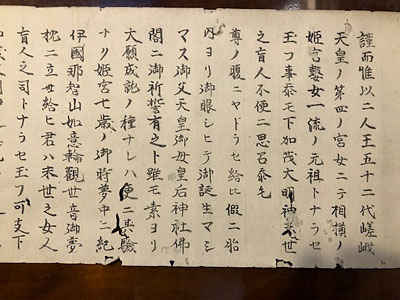 謹而惟以二人王五十二代嵯峨
天皇ノ第四ノ宮女ニテ相模ノ
姫宮瞽女一流ノ元祖トナラセ
玉フ事忝モ下加茂大明神末世
之盲人不便ニ思召忝モ
尊ノ腹ニヤドラセ給ヒ假ニ胎
内ヨリ御眼シヒテ御誕生マシ
マス御父天皇御母皇后神社佛
閣ニ御祈誓有之ト雖モ素ヨリ
大願成就ノ種ナレハ便ニ無驗
ナリ姫宮七歳ノ御時夢中ニ紀
伊國那智山如意輪觀世音御夢
枕ニ立世給ヒ君ハ末世之女人
盲人之司トナラセ玉フ可支下